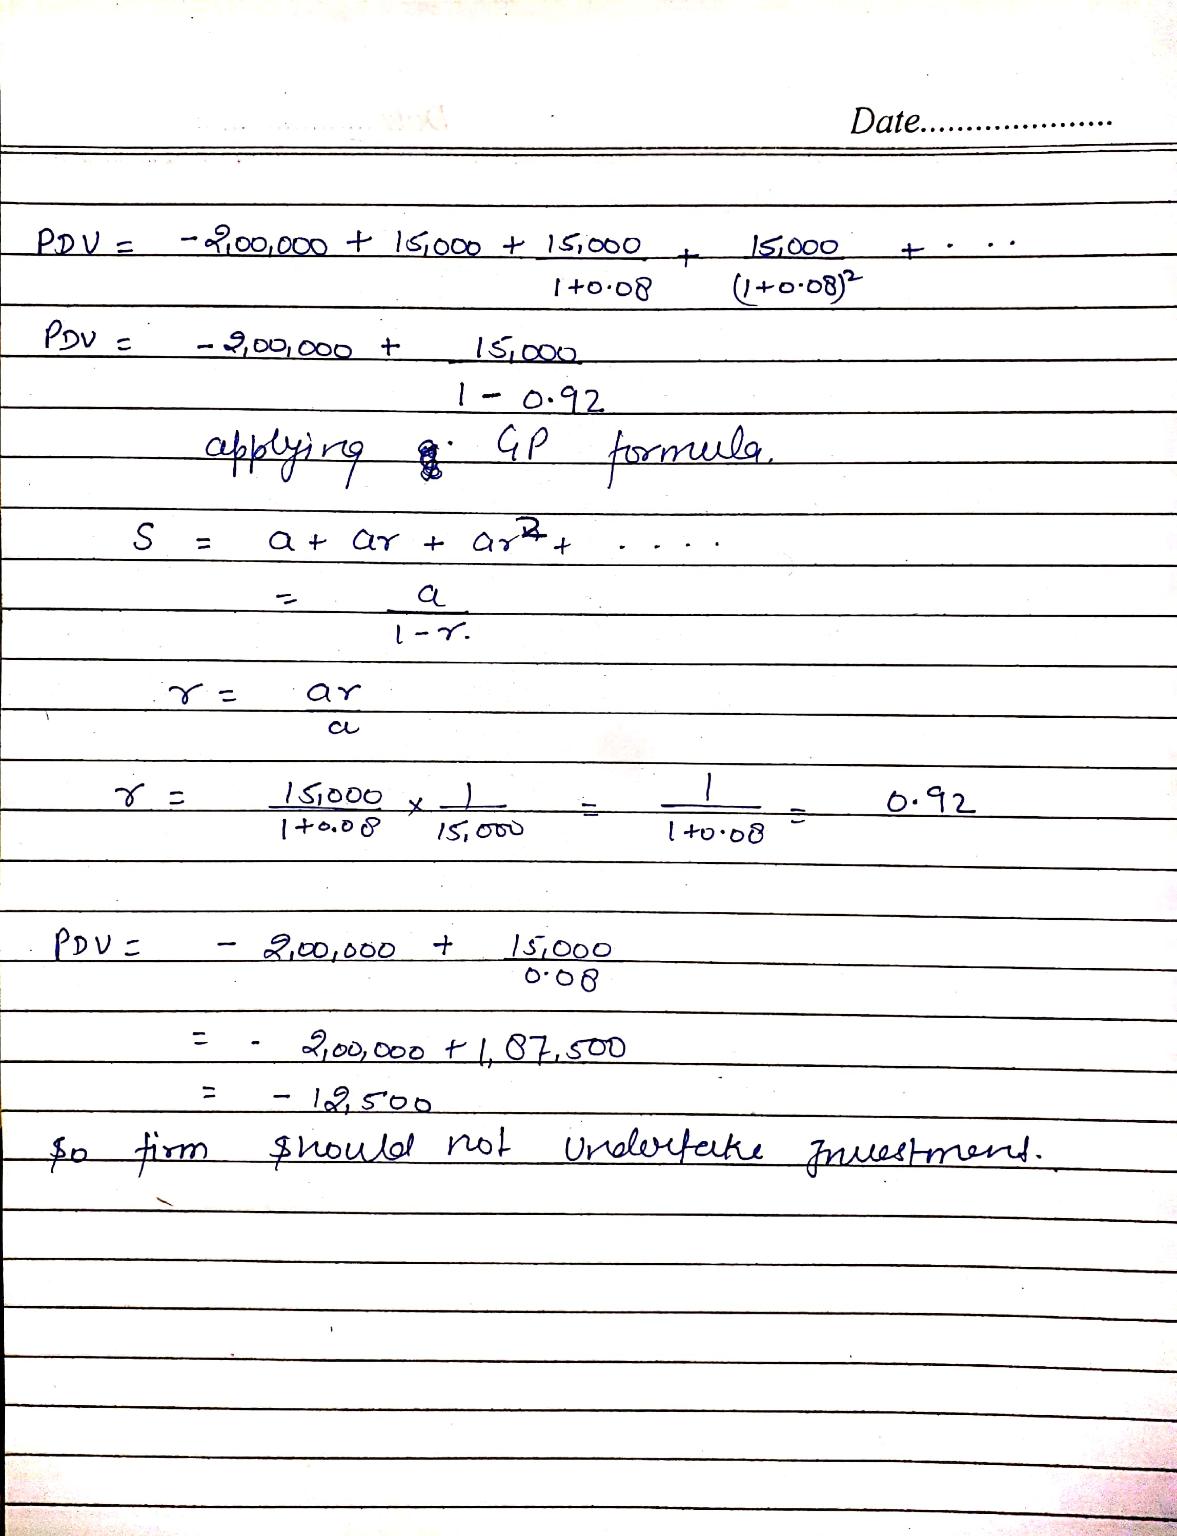 Date.....................
PDV = - 2,00,000 + 15,000 + 15,000/(1+0.08) + 15,000/(1+0.08)² + ....
PDV = - 2,00,000 + 15,000/(1 - 0.92)
applying GP formula.
S = a + ar + ar² + ....
= a/(1-r).
r = ar/a
r = 15,000/(1+0.08) × 1/15,000 = 1/(1+0.08) = 0.92
PDV = - 2,00,000 + 15,000/0.08
= - 2,00,000 + 1,87,500
= - 12,500
So firm should not undertake Investment.